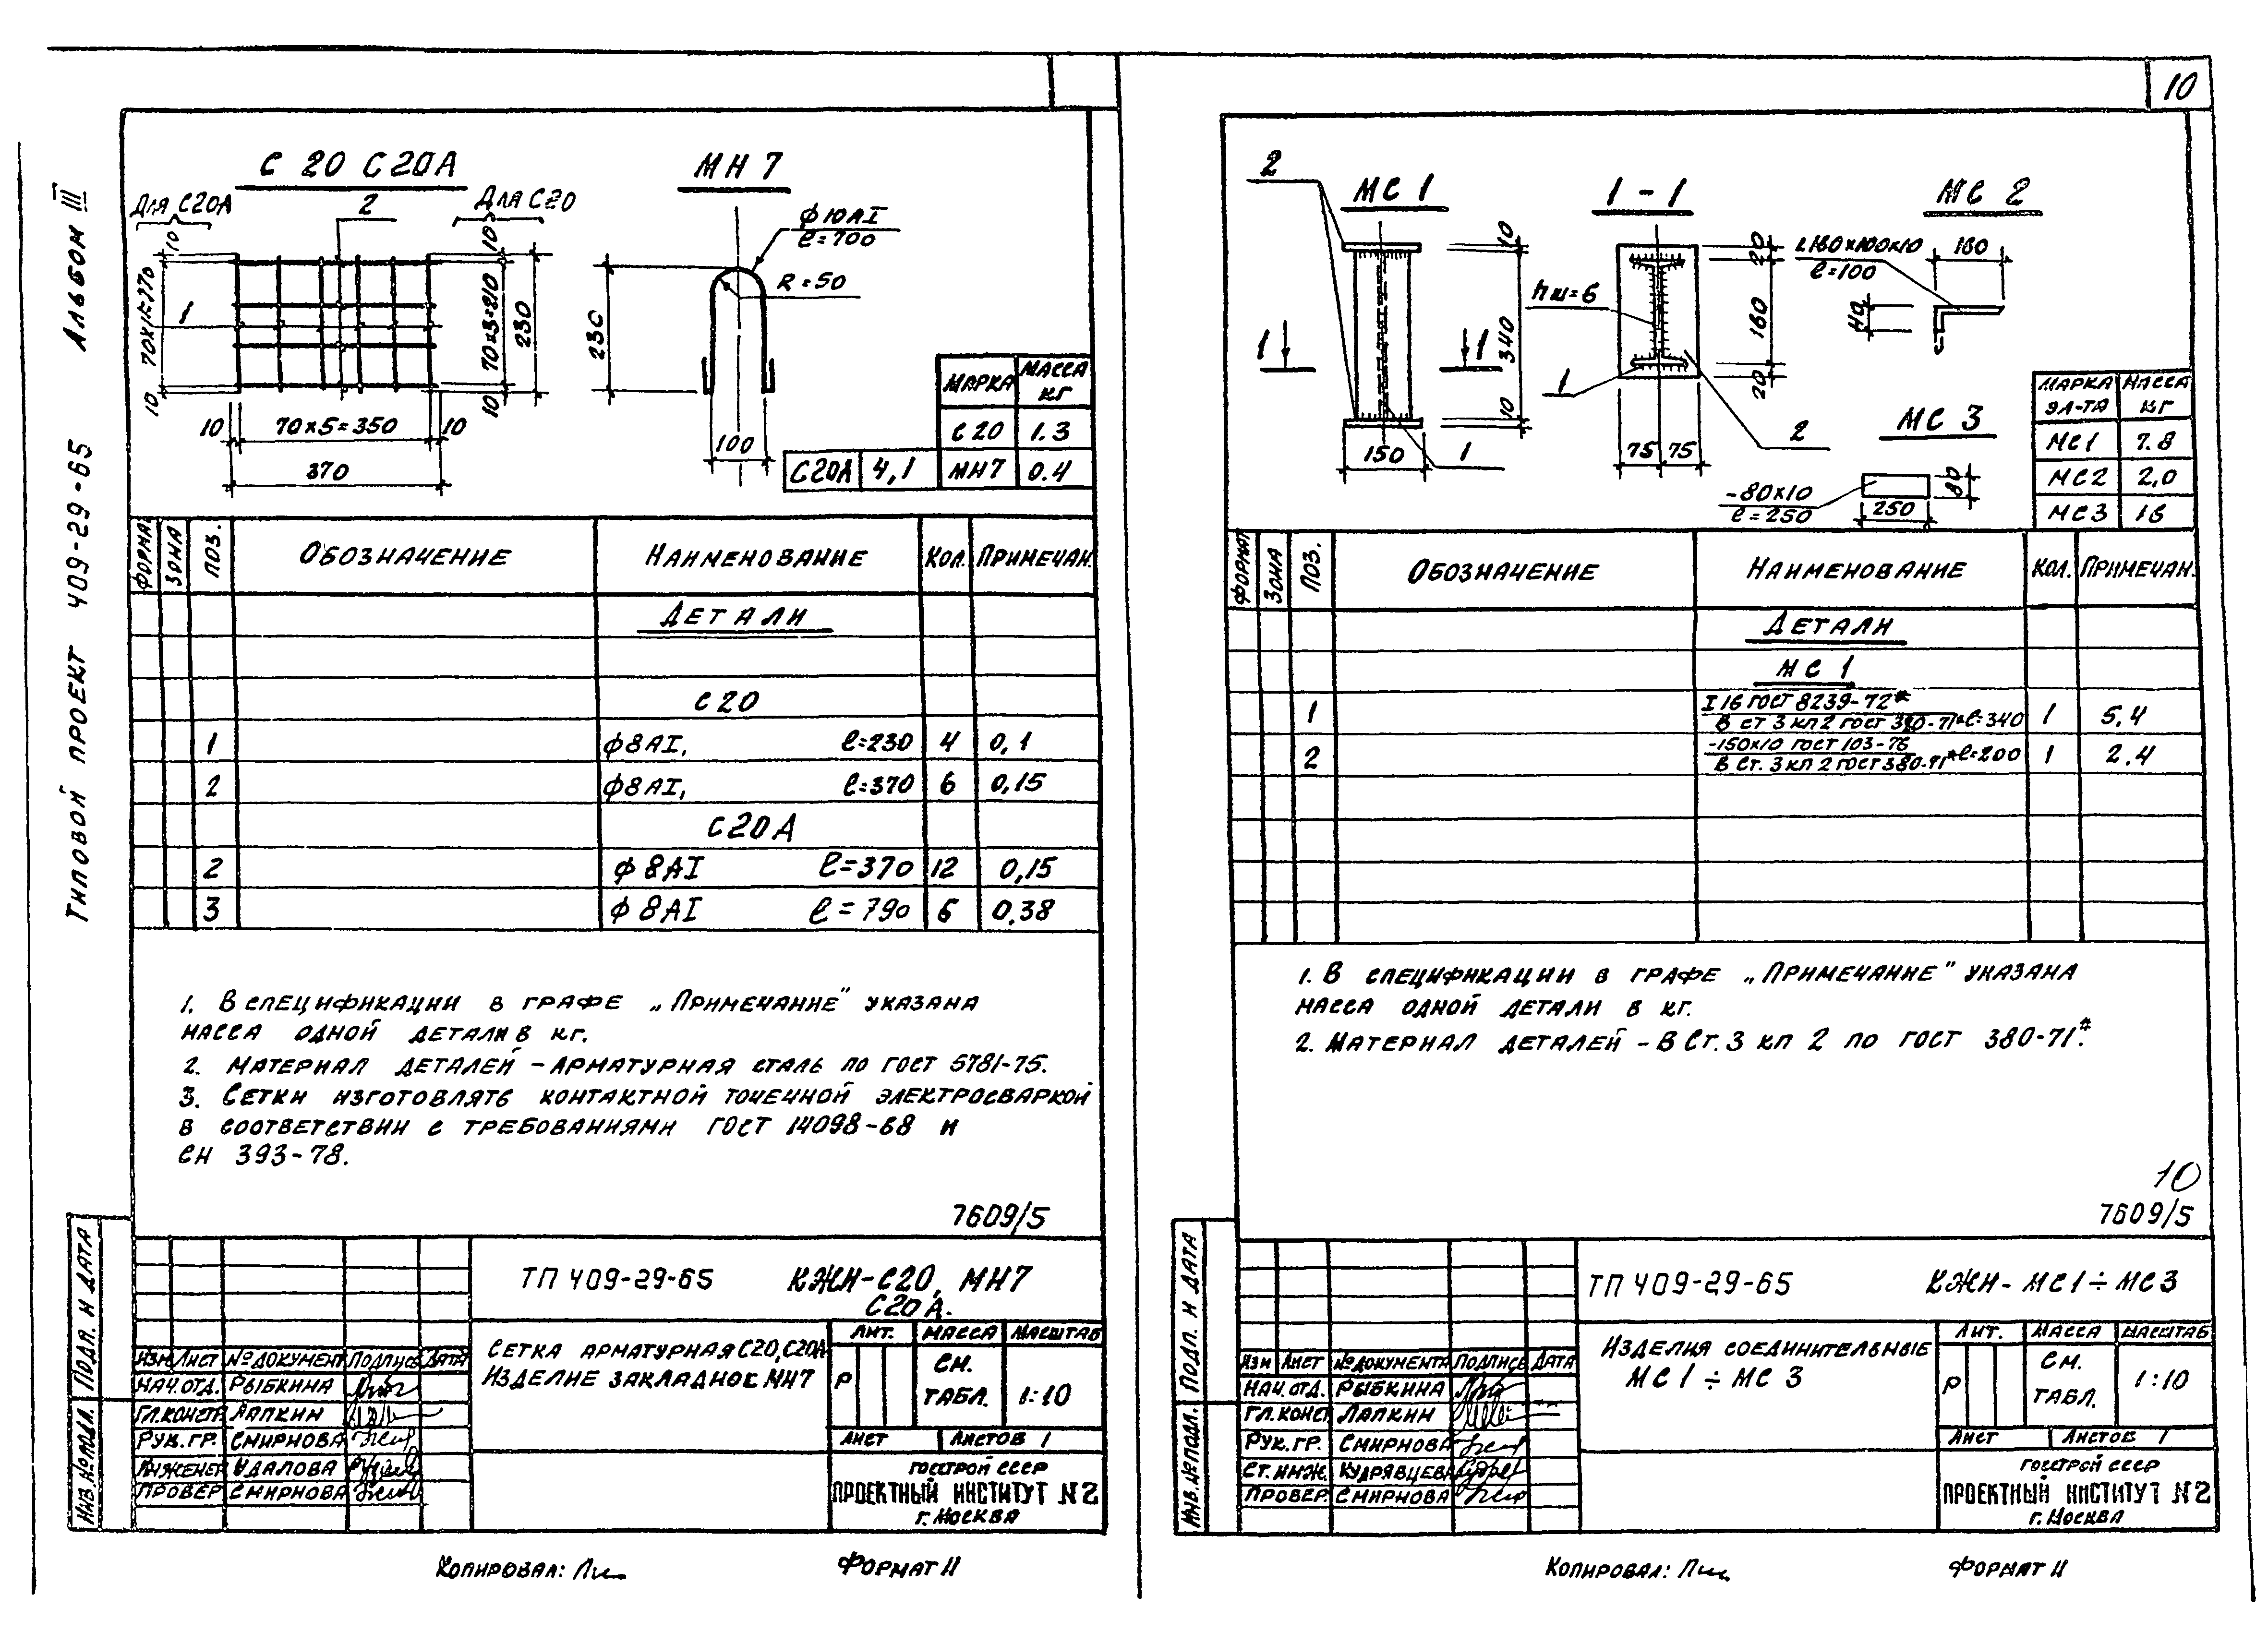 Типовой проект 409-29-65 Альбом III
С 20 С 20А
Для С20А
2
Для С20
10
70×11=770
10
1
10
70×3=210
10
230
10
70×5=350
10
370
МН 7
ф10АI
ℓ=700
R=50
230
100
МАРКА МАССА КГ
С20 1.3
С20А 4,1 МН7 0.4
ФОРМАТ ЗОНА ПОЗ. ОБОЗНАЧЕНИЕ НАИМЕНОВАНИЕ КОЛ. ПРИМЕЧАН.
ДЕТАЛИ
С20
1 ф8АI, ℓ=230 4 0,1
2 ф8АI, ℓ=370 6 0,15
С20А
2 ф8АI ℓ=370 12 0,15
3 ф8АI ℓ=790 6 0.38
1. В СПЕЦИФИКАЦИИ В ГРАФЕ „ПРИМЕЧАНИЕ" УКАЗАНА
МАССА ОДНОЙ ДЕТАЛИ В КГ.
2. МАТЕРИАЛ ДЕТАЛЕЙ – АРМАТУРНАЯ СТАЛЬ ПО ГОСТ 5781-75.
3. СЕТКИ ИЗГОТОВЛЯТЬ КОНТАКТНОЙ ТОЧЕЧНОЙ ЭЛЕКТРОСВАРКОЙ
В СООТВЕТСТВИИ С ТРЕБОВАНИЯМИ ГОСТ 14098-68 И
СН 393-78.
7609/5
ТП 409-29-65 КЖИ-С20, МН7
С20А.
СЕТКА АРМАТУРНАЯ С20, С20А
ИЗДЕЛИЕ ЗАКЛАДНОЕ МН7
ЛИТ. МАССА МАСШТАБ
Р СМ. ТАБЛ. 1:10
ЛИСТ ЛИСТОВ 1
ИЗМ ЛИСТ № ДОКУМЕНТ ПОДПИСЬ ДАТА
НАЧ.ОТД. РЫБКИНА
ГЛ.КОНСТР. ЛАПКИН
РУК.ГР. СМИРНОВА
ИНЖЕНЕР УДАЛОВА
ПРОВЕР. СМИРНОВА
ГОССТРОЙ СССР
ПРОЕКТНЫЙ ИНСТИТУТ №2
Г. МОСКВА
ИНВ.№ПОДЛ. ПОДП. И ДАТА
КОПИРОВАЛ: ФОРМАТ 11
10
2
МС 1
10
340
10
1 1
150
1
1 - 1
hш=6
20
160
20
75 75
1
2
МС 2
L160×100×10
ℓ=100
160
40
МС 3
-80×10
ℓ=250
250
80
МАРКА ЭЛ-ТА МАССА КГ
МС1 7.8
МС2 2,0
МС3 1.6
ФОРМАТ ЗОНА ПОЗ. ОБОЗНАЧЕНИЕ НАИМЕНОВАНИЕ КОЛ. ПРИМЕЧАН.
ДЕТАЛИ
МС 1
1 I 16 ГОСТ 8239-72* В СТ 3 КП 2 ГОСТ 380-71* ℓ=340 1 5,4
2 -150×10 ГОСТ 103-76 В СТ. 3 КП 2 ГОСТ 380-71* ℓ=200 1 2.4
1. В СПЕЦИФИКАЦИИ В ГРАФЕ „ПРИМЕЧАНИЕ" УКАЗАНА
МАССА ОДНОЙ ДЕТАЛИ В КГ.
2. МАТЕРИАЛ ДЕТАЛЕЙ – В СТ. 3 КП 2 ПО ГОСТ 380-71*.
10
7609/5
ТП 409-29-65 КЖИ- МС1÷МС3
ИЗДЕЛИЯ СОЕДИНИТЕЛЬНЫЕ
МС 1 ÷ МС 3
ЛИТ. МАССА МАСШТАБ
Р СМ. ТАБЛ. 1:10
ЛИСТ ЛИСТОВ 1
ИЗМ ЛИСТ № ДОКУМЕНТА ПОДПИСЬ ДАТА
НАЧ.ОТД. РЫБКИНА
ГЛ.КОНСТ. ЛАПКИН
РУК.ГР. СМИРНОВА
СТ.ИНЖ. КУДРЯВЦЕВА
ПРОВЕР. СМИРНОВА
ГОССТРОЙ СССР
ПРОЕКТНЫЙ ИНСТИТУТ №2
Г. МОСКВА
ИНВ.№ПОДЛ. ПОДП. И ДАТА
КОПИРОВАЛ: ФОРМАТ 11